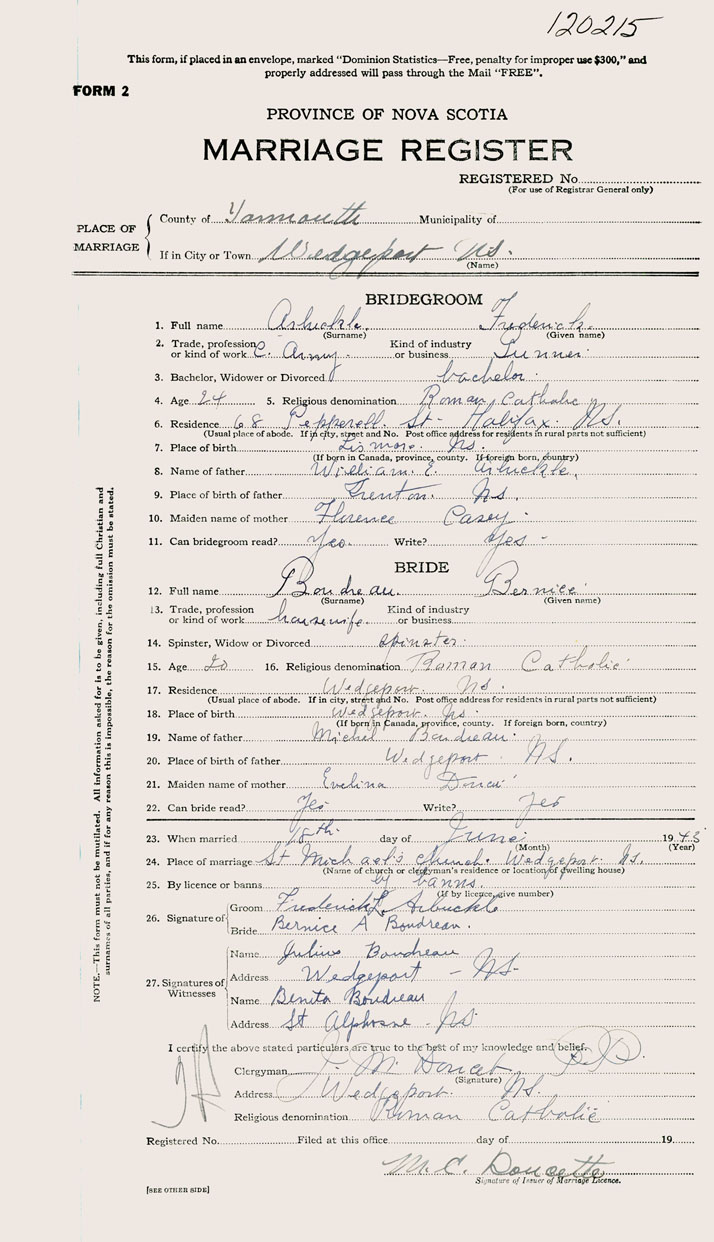 120215
This form, if placed in an envelope, marked "Dominion Statistics—Free, penalty for improper use $300," and
properly addressed will pass through the Mail "FREE".
FORM 2
PROVINCE OF NOVA SCOTIA
MARRIAGE REGISTER
REGISTERED No.
(For use of Registrar General only)
PLACE OF MARRIAGE
County of Yarmouth Municipality of
If in City or Town Wedgeport NS.
(Name)
BRIDEGROOM
1. Full name Arbuckle. Frederick
(Surname) (Given name)
2. Trade, profession or kind of work C. Army. Kind of industry or business Gunner
3. Bachelor, Widower or Divorced bachelor
4. Age 24 5. Religious denomination Roman Catholic
6. Residence 68 Pepperell St. Halifax. NS.
(Usual place of abode. If in city, street and No. Post office address for residents in rural parts not sufficient)
7. Place of birth Lismore. Ns.
(If born in Canada, province, county. If foreign born, country)
8. Name of father William. E. Arbuckle.
9. Place of birth of father Trenton. Ns.
10. Maiden name of mother Florence Casey
11. Can bridegroom read? Yes. Write? Yes
BRIDE
12. Full name Boudreau. Bernice
(Surname) (Given name)
13. Trade, profession or kind of work housewife. Kind of industry or business
14. Spinster, Widow or Divorced spinster
15. Age 20 16. Religious denomination Roman Catholic
17. Residence Wedgeport. Ns.
(Usual place of abode. If in city, street and No. Post office address for residents in rural parts not sufficient)
18. Place of birth Wedgeport. Ns.
(If born in Canada, province, county. If foreign born, country)
19. Name of father Michel Boudreau
20. Place of birth of father Wedgeport NS.
21. Maiden name of mother Evelina
22. Can bride read? Yes Write? Yes
23. When married day of June 1943
(Month) (Year)
24. Place of marriage St Michael's church. Wedgeport Ns.
(Name of church or clergyman's residence or location of dwelling house)
25. By licence or banns by banns.
(If by licence, give number)
26. Signature of
Groom Frederick L. Arbuckle
Bride Bernice A Boudreau.
27. Signatures of Witnesses
Name Julius Boudreau
Address Wedgeport - NS-
Name Benita Boudreau
Address St Alphonse - NS
I certify the above stated particulars are true to the best of my knowledge and belief.
Clergyman M. Doucet
(Signature)
Address Wedgeport. NS.
Religious denomination Roman Catholic
Registered No. Filed at this office day of 19
M. C. Doucette
Signature of Issuer of Marriage Licence.
[SEE OTHER SIDE]
NOTE.—This form must not be mutilated. All information asked for is to be given, including full Christian and
surnames of all parties, and if for any reason this is impossible, the reason for the omission must be stated.